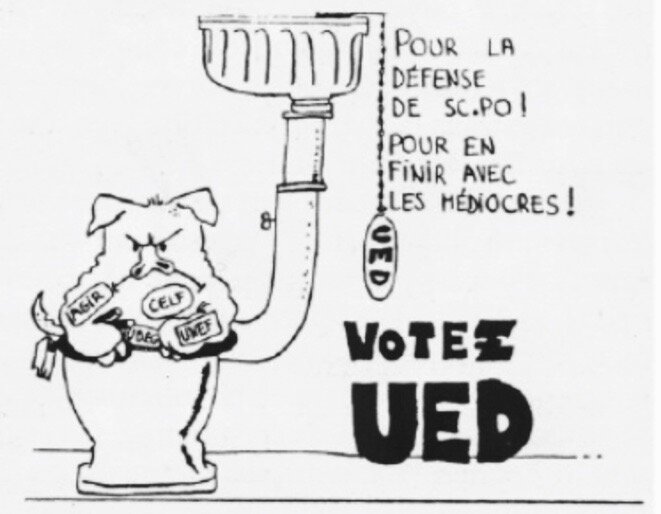 POUR LA
DÉFENSE
DE SC.PO!
POUR EN
FINIR AVEC
LES MÉDIOCRES!
UED
AGIR
CELF
UNEF
VOTEZ
UED